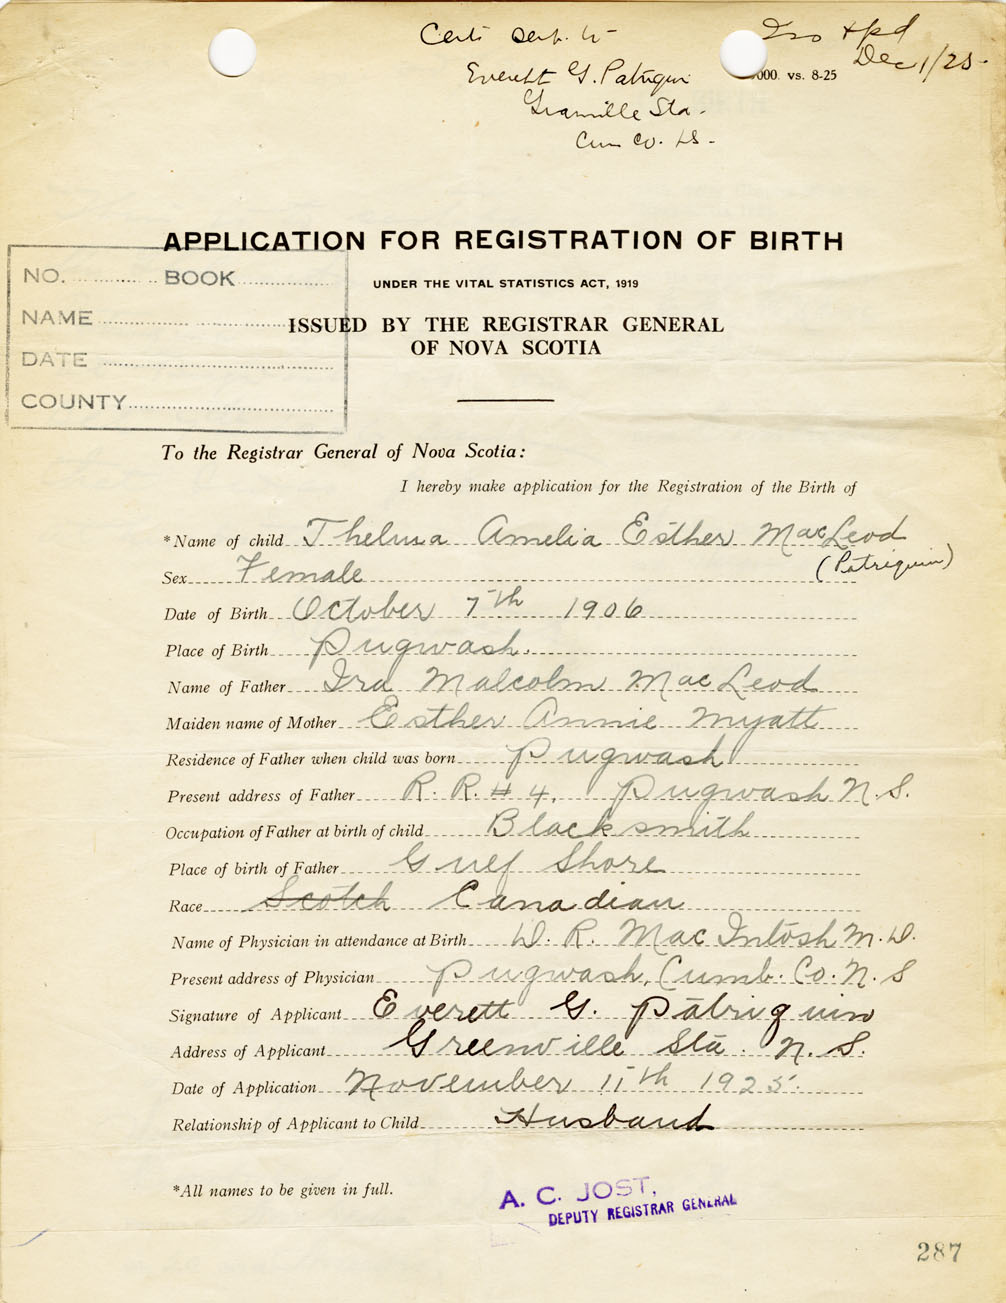 Certi sent to
Everett G. Patriquin
Granville Sta.
Cum Co. NS -
pd
Dec 1/25-
000. vs. 8-25
APPLICATION FOR REGISTRATION OF BIRTH
UNDER THE VITAL STATISTICS ACT, 1919
ISSUED BY THE REGISTRAR GENERAL
OF NOVA SCOTIA
NO. BOOK
NAME
DATE
COUNTY
To the Registrar General of Nova Scotia:
I hereby make application for the Registration of the Birth of
*Name of child Thelma Amelia Esther MacLeod
(Patriquin)
Sex Female
Date of Birth October 7th 1906
Place of Birth Pugwash.
Name of Father Ira Malcolm MacLeod
Maiden name of Mother Esther Annie Myatt
Residence of Father when child was born Pugwash
Present address of Father R. R. # 4, Pugwash N.S.
Occupation of Father at birth of child Blacksmith
Place of birth of Father Gulf Shore
Race Scotch Canadian
Name of Physician in attendance at Birth D. R. MacIntosh M.D.
Present address of Physician Pugwash, Cumb. Co. N.S
Signature of Applicant Everett G. Patriquin
Address of Applicant Greenville Sta. N.S.
Date of Application November 11th 1925.
Relationship of Applicant to Child Husband
*All names to be given in full.
A. C. JOST,
DEPUTY REGISTRAR GENERAL
287